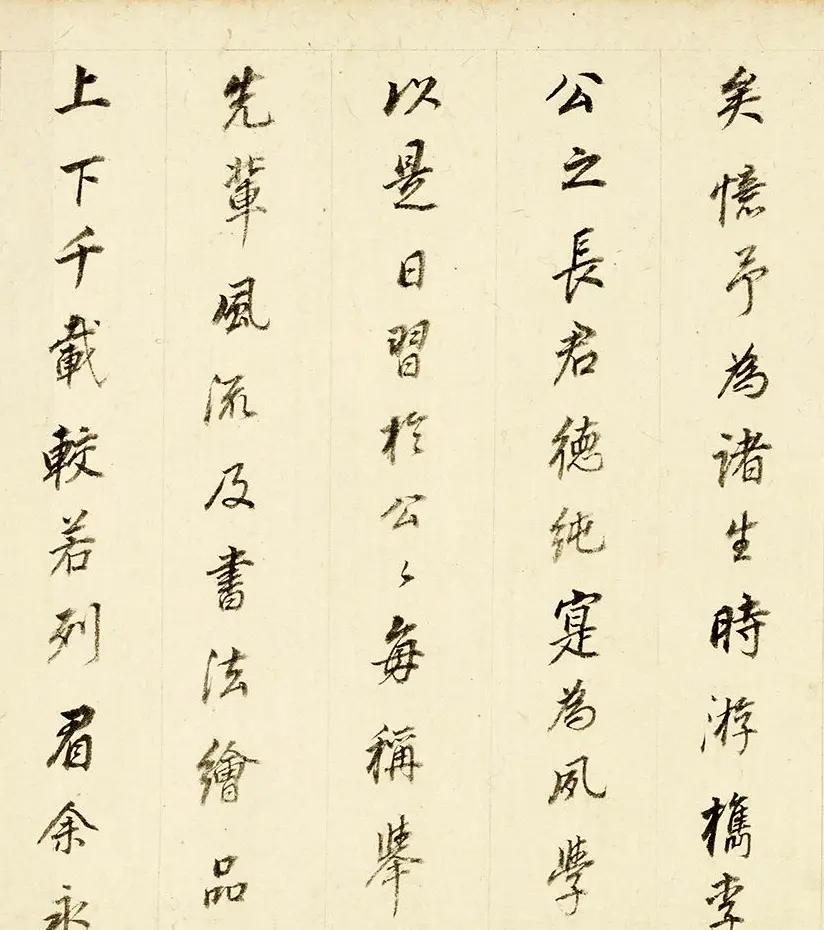 矣憶予為諸生時游檇李
公之長君德純寔為夙學
以是日習於公〻每稱舉
先輩風流及書法繪品
上下千載較若列眉余永